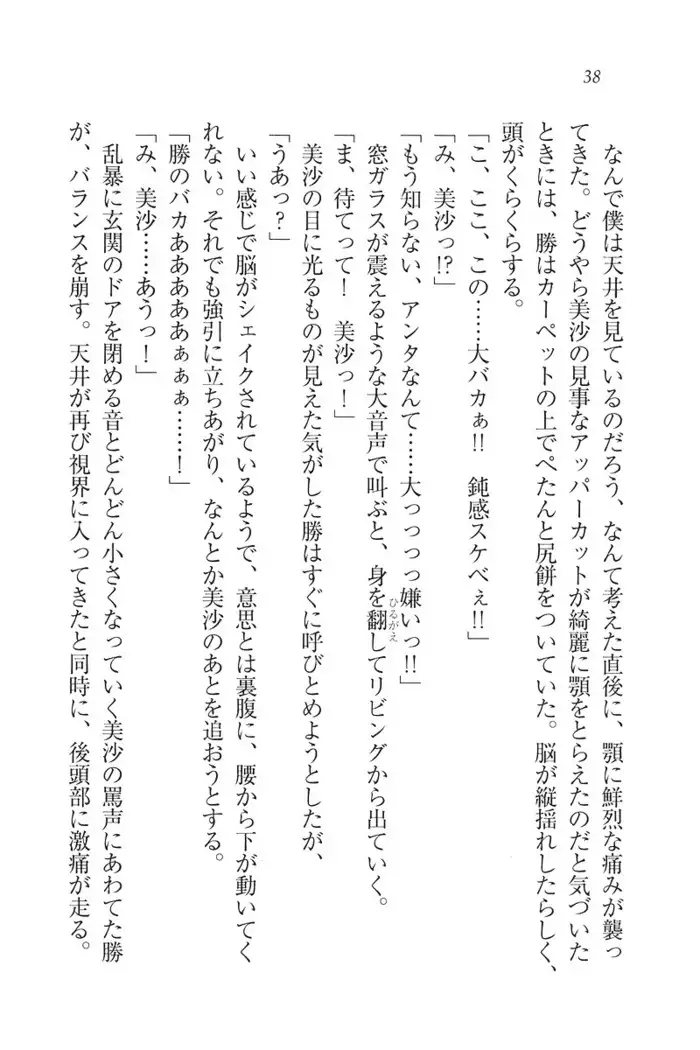 38
なんで僕は天井を見ているのだろう、なんて考えた直後に、顎に鮮烈な痛みが襲っ
てきた。どうやら美沙の見事なアッパーカットが綺麗に顎をとらえたのだと気づいた
ときには、勝はカーペットの上でぺたんと尻餅をついていた。脳が縦揺れしたらしく、
頭がくらくらする。
「こ、ここ、この……大バカぁ!! 鈍感スケベぇ!!」
「み、美沙っ!?」
「もう知らない、アンタなんて……大っっっっ嫌いっ!!」
窓ガラスが震えるような大音声で叫ぶと、身を翻してリビングから出ていく。
ひるがえ
「ま、待てって! 美沙っ!」
美沙の目に光るものが見えた気がした勝はすぐに呼びとめようとしたが、
「うあっ?」
いい感じで脳がシェイクされているようで、意思とは裏腹に、腰から下が動いてく
れない。それでも強引に立ちあがり、なんとか美沙のあとを追おうとする。
「勝のバカああああああぁぁぁ……!」
「み、美沙……あうっ!」
乱暴に玄関のドアを閉める音とどんどん小さくなっていく美沙の罵声にあわてた勝
が、バランスを崩す。天井が再び視界に入ってきたと同時に、後頭部に激痛が走る。